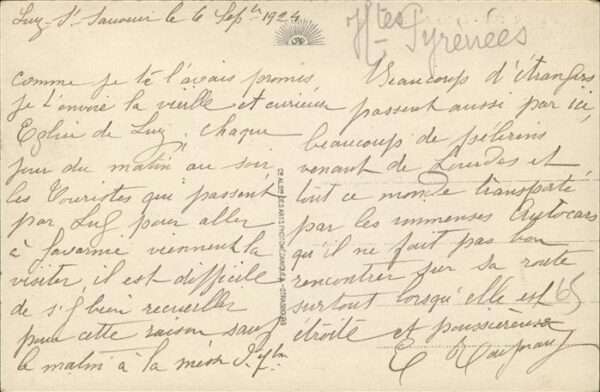 Luz-St-Sauveur le 6 Septbre 1924
Htes Pyrénées
comme je te l'avais promis
je t'envoie la vieille et curieuse
Eglise de Luz. Chaque
jour du matin au soir
les Touristes qui passent
par Luz pour aller
à Gavarnie viennent la
visiter, il est difficile
de s'y bien recueillir
pour cette raison sauf
le matin à la messe
Beaucoup d'étrangers
passent aussi par ici,
beaucoup de pèlerins
venant de Lourdes et
tout ce monde transporté
par les immenses Autocars
qu'il ne fait pas bon
rencontrer sur sa route
surtout lorsqu'elle est
étroite et poussiéreuse
65